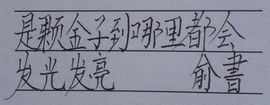 是颗金子到哪里都会
发光发亮 俞書